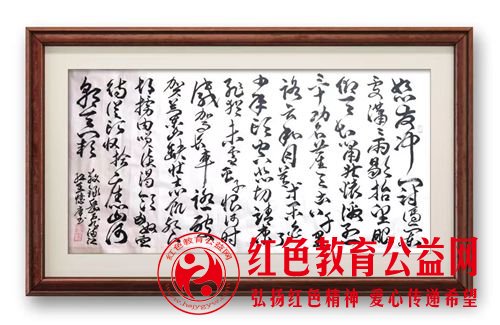 怒发冲冠凭栏
处潇潇雨歇抬望眼
仰天长啸壮怀激烈
三十功名尘与土八千里
路云和月莫等闲白了
少年头空悲切靖康
耻犹未雪臣子恨何时
灭驾长车踏破
贺兰山缺壮志饥餐
胡虏肉笑谈渴饮匈奴血
待从头收拾旧山河
朝天阙
红色教育公益网
弘扬红色精神 爱心传递希望